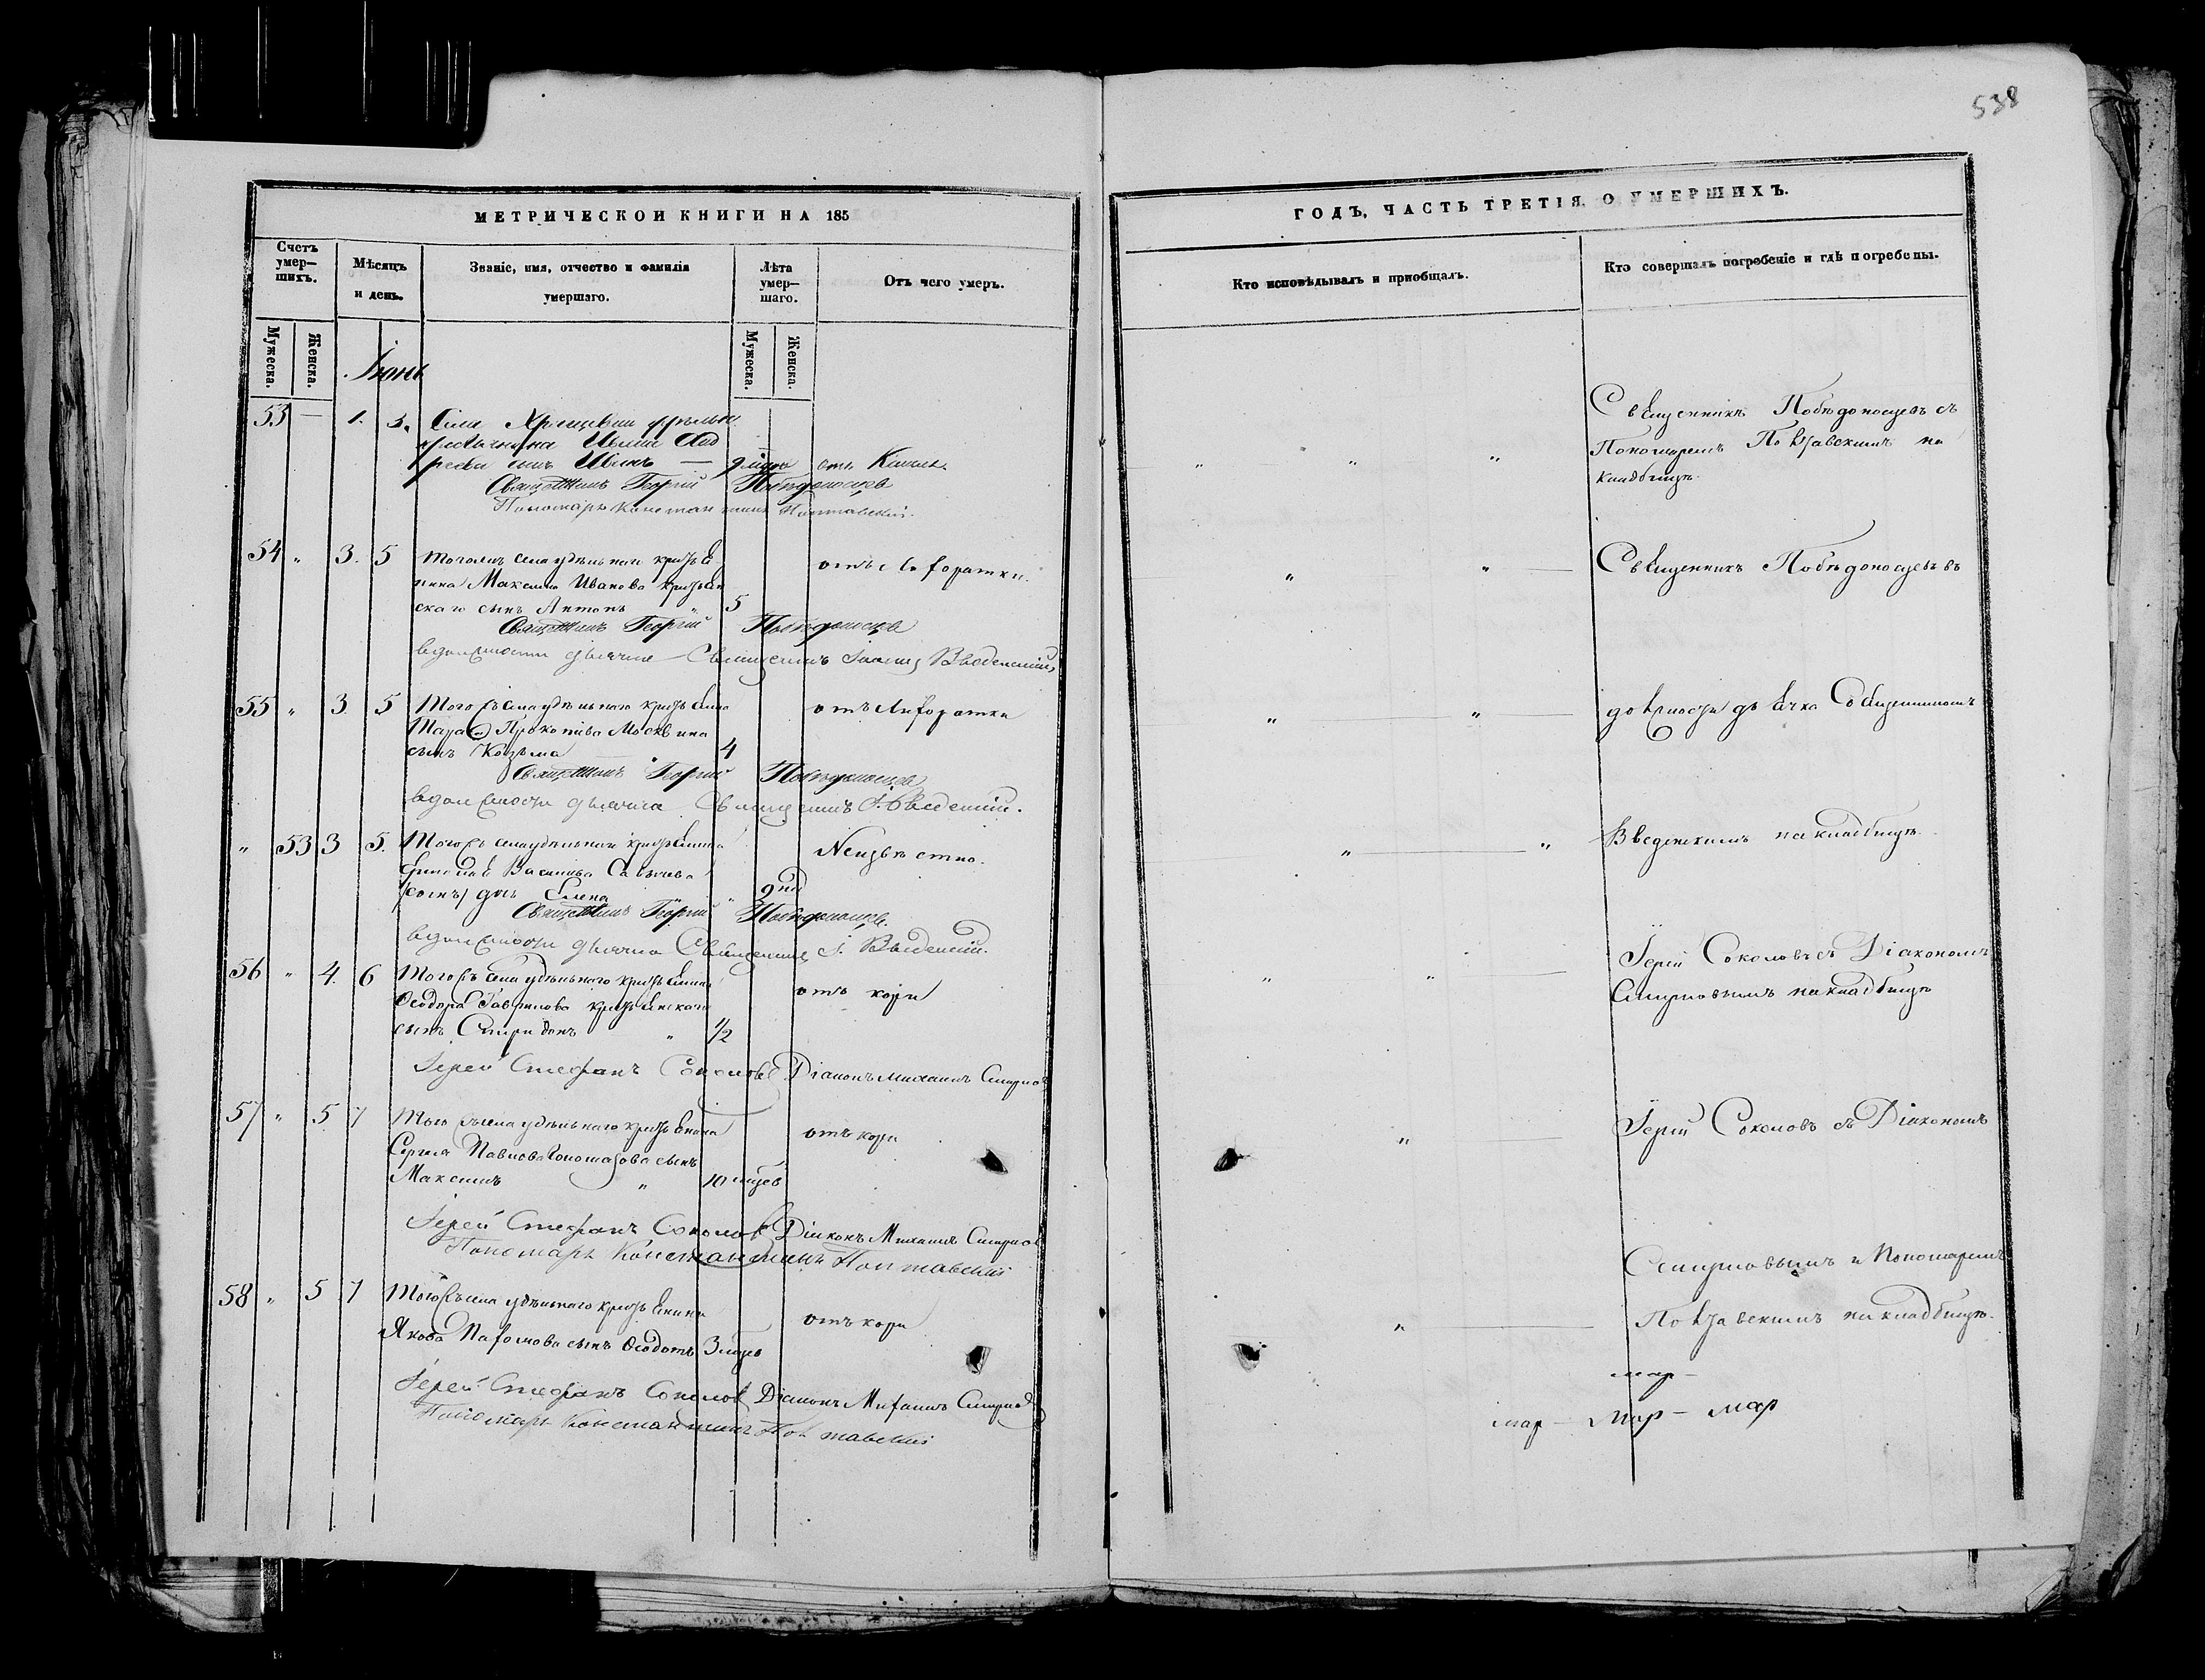 538
МЕТРИЧЕСКОЙ КНИГИ НА 185
Счетъ умер—шихъ.
Мѣсяцъ и день.
Званіе, имя, отчество и фамилія умершаго.
Лѣта умер—шаго.
Отъ чего умеръ.
Мужеска.
Женска.
Мужеска.
Женска.
Іюнь
53 — 1. 3.
крестьянина
сынъ Иванъ — отъ Кашля.
Священникъ Георгій Побѣдоносцевъ
Пономарь Константинъ Полтавскій.
54 " 3. 5 Тогожъ села удѣльнаго крестья
нина Максима Иванова
скаго сынъ Антонъ " 5
Священникъ Георгій Побѣдоносцевъ
в должности дьячка Священникъ Іоаннъ Введенскій
55 " 3. 5 Тогожъ села удѣльнаго крестьянина отъ Лихоратки
Тараса Прокопіева Москвина
сынъ Козьма 4
Священникъ Георгій Побѣдоносцевъ
в должности дьячка Священникъ І. Введенскій.
" 53 3 5. Тогожъ села удѣльнаго крестьянина Неизвѣстно.
Василіева
дочь Елена " 9 нед
Священникъ Георгій Побѣдоносцевъ.
в должности дьячка Священникъ І. Введенскій.
56 " 4. 6 Тогожъ села удѣльнаго крестьянина отъ кори
Ѳеодора Гаврилова
сынъ Спиридонъ " 1/2
Іерей Стефанъ Соколовъ Діаконъ Михаилъ Смирновъ
57 " 5 7 Тогожъ села удѣльнаго крестьянина отъ кори
Сергея Павлова Пономарова сынъ
Максимъ " 10 мцев
Іерей Стефанъ Соколовъ Діаконъ Михаилъ Смирновъ
Пономарь Константинъ Полтавскій
58 " 5 7 Тогожъ села удѣльнаго крестьянина отъ кори
Якова Пахомова сынъ Ѳеодотъ 3 мцев
Іерей Стефанъ Соколовъ Діаконъ Михаилъ Смирновъ
Пономарь Константинъ Полтавскій
ГОДЪ, ЧАСТЬ ТРЕТІЯ, О УМЕРШИХЪ.
Кто исповѣдывалъ и пріобщалъ.
Кто совершалъ погребеніе и гдѣ погребены.
Священникъ Побѣдоносцевъ съ
Пономаремъ Полтавскимъ на
кладбищѣ.
Священникъ Побѣдоносцевъ въ
должности дьячка Священникомъ
Введенскимъ на кладбищѣ.
Іерей Соколовъ съ Діакономъ
Смирновымъ на кладбищѣ
Іерей Соколовъ съ Діакономъ
Смирновымъ и Пономаремъ
Полтавскимъ на кладбищѣ.
мар —
мар — мар — мар